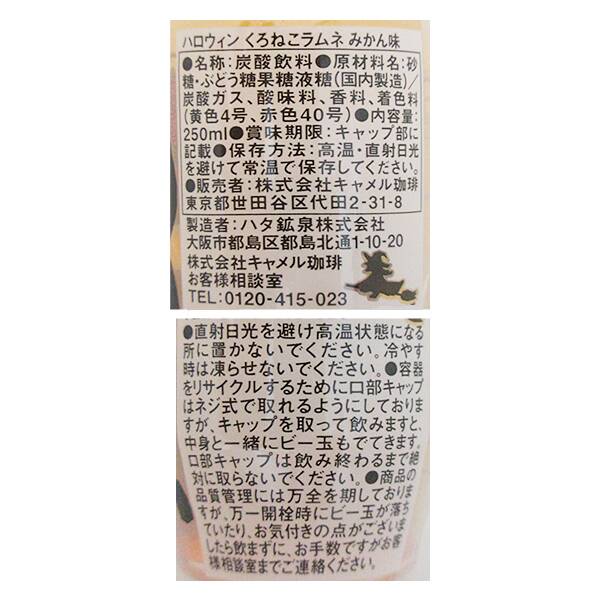 ハロウィン くろねこラムネ みかん味
●名称:炭酸飲料●原材料名:砂
糖・ぶどう糖果糖液糖(国内製造)/
炭酸ガス、酸味料、香料、着色料
(黄色4号、赤色40号)●内容量:
250ml●賞味期限:キャップ部に
記載●保存方法:高温・直射日光
を避けて常温で保存してください。
●販売者:株式会社キャメル珈琲
東京都世田谷区代田2-31-8
製造者:ハタ鉱泉株式会社
大阪市都島区都島北通1-10-20
株式会社キャメル珈琲
お客様相談室
TEL:0120-415-023
●直射日光を避け高温状態になる
所に置かないでください。冷やす
時は凍らせないでください。●容器
をリサイクルするために口部キャップ
はネジ式で取れるようにしており
ますが、キャップを取って飲みますと、
中身と一緒にビー玉もでてきます。
口部キャップは飲み終わるまで絶
対に取らないでください。●商品の
品質管理には万全を期しておりま
すが、万一開栓時にビー玉が落ち
ていたり、お気付きの点がございま
したら飲まずに、お手数ですがお客
様相談室までご連絡ください。